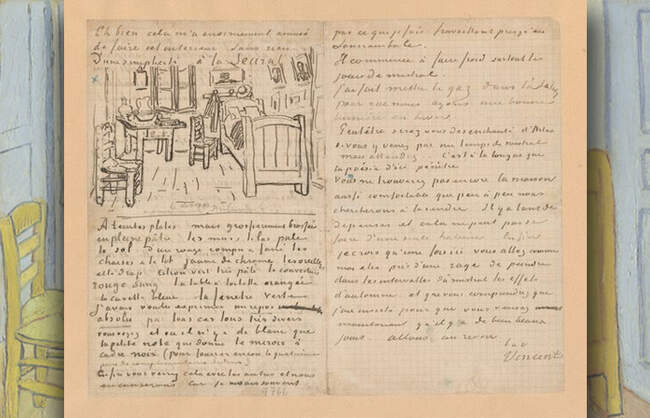 Eh bien cela m'a enormement amusé
de faire cet interieur sans rien
D'une simplicité à la Seurat
À teintes plates mais grossierement brossées
en pleine pâte les murs lilas pale
le sol d'un rouge rompu & fané les
chaises & le lit jaune de chrome les oreillers
et le drap citron vert très pâle la couverture
rouge sang la table à toilette orangée
la cuvette bleue la fenetre verte
J'avais voulu exprimer un repos
absolu par tous ces tons très divers
vous voyez et où il n'y a de blanc que
la petite note que donne le miroir à
cadre noir (pour fourrer encore la quatrième
paire de complémentaires dedans)
Enfin vous verrez cela avec les autres et nous
en causerons Car je ne sais souvent
pas ce que je fais travaillant presqu'en
somnambule.
Il commence à faire froid surtout les
jours de mistral.
J'ai fait mettre le gaz dans l'atelier
pour que nous ayons une bonne
lumière en hiver
Peutêtre serez vous desenchanté d'Arles
si vous y venez par un temps de mistral
mais attendez C'est à la longue que
la poésie d'ici pénètre
Vous ne trouverez pas encore la maison
aussi comfortable que peu à peu nous
chercherons à la rendre. Il y a tant de
depenses et cela ne peut pas se
faire d'une seule haleine. Enfin
je crois qu'une fois ici vous allez comme
moi etre pris d'une rage de peindre
dans les intervalles du mistral les effets
d'automne et que vous comprendrez que
j'ai insisté pour que vous venez
maintenant qu'il y a de bien beaux
jours allons, au revoir
t à v
Vincent